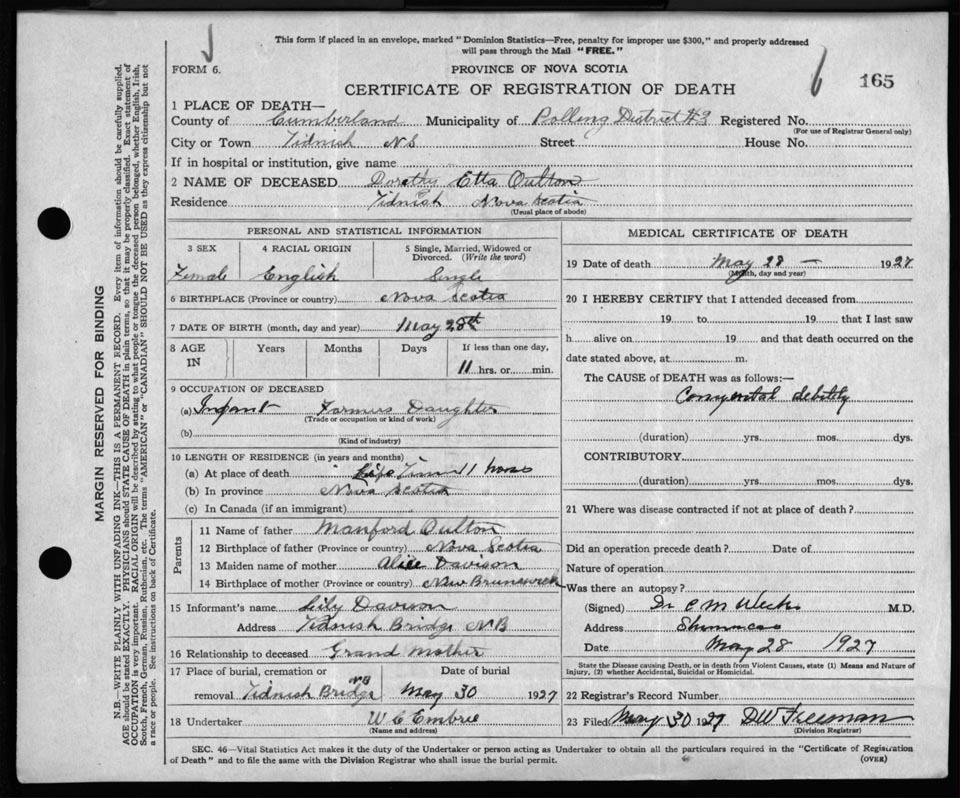 This form if placed in an envelope, marked "Dominion Statistics—Free, penalty for improper use $300," and properly addressed
will pass through the Mail "FREE."
FORM 6.
PROVINCE OF NOVA SCOTIA
165
CERTIFICATE OF REGISTRATION OF DEATH
1 PLACE OF DEATH—
County of Cumberland Municipality of Polling District #3 Registered No.
(For use of Registrar General only)
City or Town Tidnish NS Street House No.
If in hospital or institution, give name
2 NAME OF DECEASED Dorothy Etta Oulton
Residence Tidnish Nova Scotia
(Usual place of abode)
PERSONAL AND STATISTICAL INFORMATION
3 SEX 4 RACIAL ORIGIN 5 Single, Married, Widowed or Divorced. (Write the word)
Female English Single
6 BIRTHPLACE (Province or country) Nova Scotia
7 DATE OF BIRTH (month, day and year) May 28th
8 AGE IN Years Months Days If less than one day,
11 hrs. or min.
9 OCCUPATION OF DECEASED
(a) Infant Farmers Daughter
(Trade or occupation or kind of work)
(b)
(Kind of industry)
10 LENGTH OF RESIDENCE (in years and months)
(a) At place of death Life Time 11 hours
(b) In province Nova Scotia
(c) In Canada (if an immigrant)
Parents
11 Name of father Manford Oulton
12 Birthplace of father (Province or country) Nova Scotia
13 Maiden name of mother Alice Davison
14 Birthplace of mother (Province or country) New Brunswick
15 Informant's name Lily Davison
Address Tidnish Bridge NB
16 Relationship to deceased Grand Mother
17 Place of burial, cremation or Date of burial
removal Tidnish Bridge NB May 30 1927
18 Undertaker W C Embrie
(Name and address)
MEDICAL CERTIFICATE OF DEATH
19 Date of death May 28 — 1927
(Month, day and year)
20 I HEREBY CERTIFY that I attended deceased from
19 to 19 that I last saw
h alive on 19 and that death occurred on the
date stated above, at m.
The CAUSE OF DEATH was as follows:—
Congenital debility
(duration) yrs. mos. dys.
CONTRIBUTORY
(duration) yrs. mos. dys.
21 Where was disease contracted if not at place of death?
Did an operation precede death? Date of
Nature of operation
Was there an autopsy?
(Signed) Dr C M Weeks M.D.
Address
Date May 28 1927
State the Disease causing Death, or in death from Violent Causes, state (1) Means and Nature of
Injury, (2) whether Accidental, Suicidal or Homicidal.
22 Registrar's Record Number
23 Filed May 30 1927 DW Freeman
(Division Registrar)
SEC. 46—Vital Statistics Act makes it the duty of the Undertaker or person acting as Undertaker to obtain all the particulars required in the "Certificate of Registration
of Death" and to file the same with the Division Registrar who shall issue the burial permit.
(OVER)
MARGIN RESERVED FOR BINDING
N.B.—WRITE PLAINLY WITH UNFADING INK—THIS IS A PERMANENT RECORD. Every item of information should be carefully supplied.
AGE should be stated EXACTLY. PHYSICIANS should STATE CAUSE OF DEATH in plain terms, so that it may be properly classified. Exact statement of
OCCUPATION is very important. RACIAL ORIGIN will be described by stating to what people or tongue the deceased person belonged, whether English, Irish,
Scotch, French, German, Russian, Ruthenian, etc. The terms "AMERICAN" or "CANADIAN" SHOULD NOT BE USED as they express citizenship but not
a race or people. See instructions on back of Certificate.